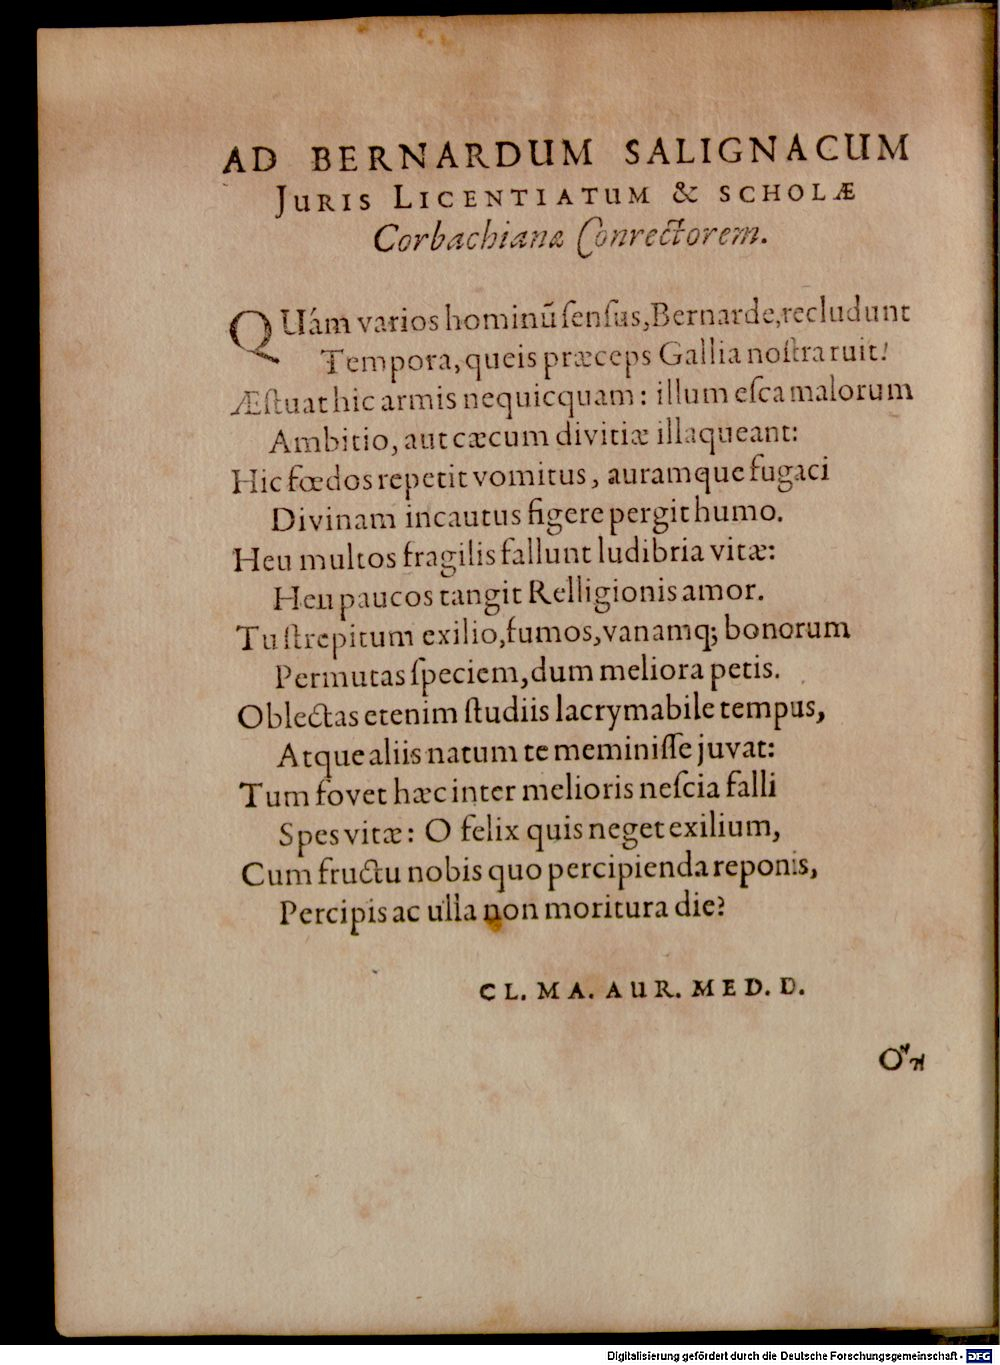 AD BERNARDUM SALIGNACUM
JURIS LICENTIATUM & SCHOLÆ
Corbachianæ Conrectorem.
QUám varios hominũ ſenſus, Bernarde, recludunt
Tempora, queis præceps Gallia noſtra ruit!
Æſtuat hic armis nequicquam: illum eſca malorum
Ambitio, aut cæcum divitiæ illaqueant:
Hic fœdos repetit vomitus, auramque fugaci
Divinam incautus figere pergit humo.
Heu multos fragilis fallunt ludibria vitæ:
Heu paucos tangit Relligionis amor.
Tu ſtrepitum exilio, fumos, vanamq; bonorum
Permutas ſpeciem, dum meliora petis.
Oblectas etenim ſtudiis lacrymabile tempus,
Atque aliis natum te meminiſſe juvat:
Tum fovet hæc inter melioris neſcia falli
Spes vitæ: O felix quis neget exilium,
Cum fructu nobis quo percipienda reponis,
Percipis ac ulla non moritura die?
CL. MA. AUR. MED. D.
Digitalisierung gefördert durch die Deutsche Forschungsgemeinschaft - DFG